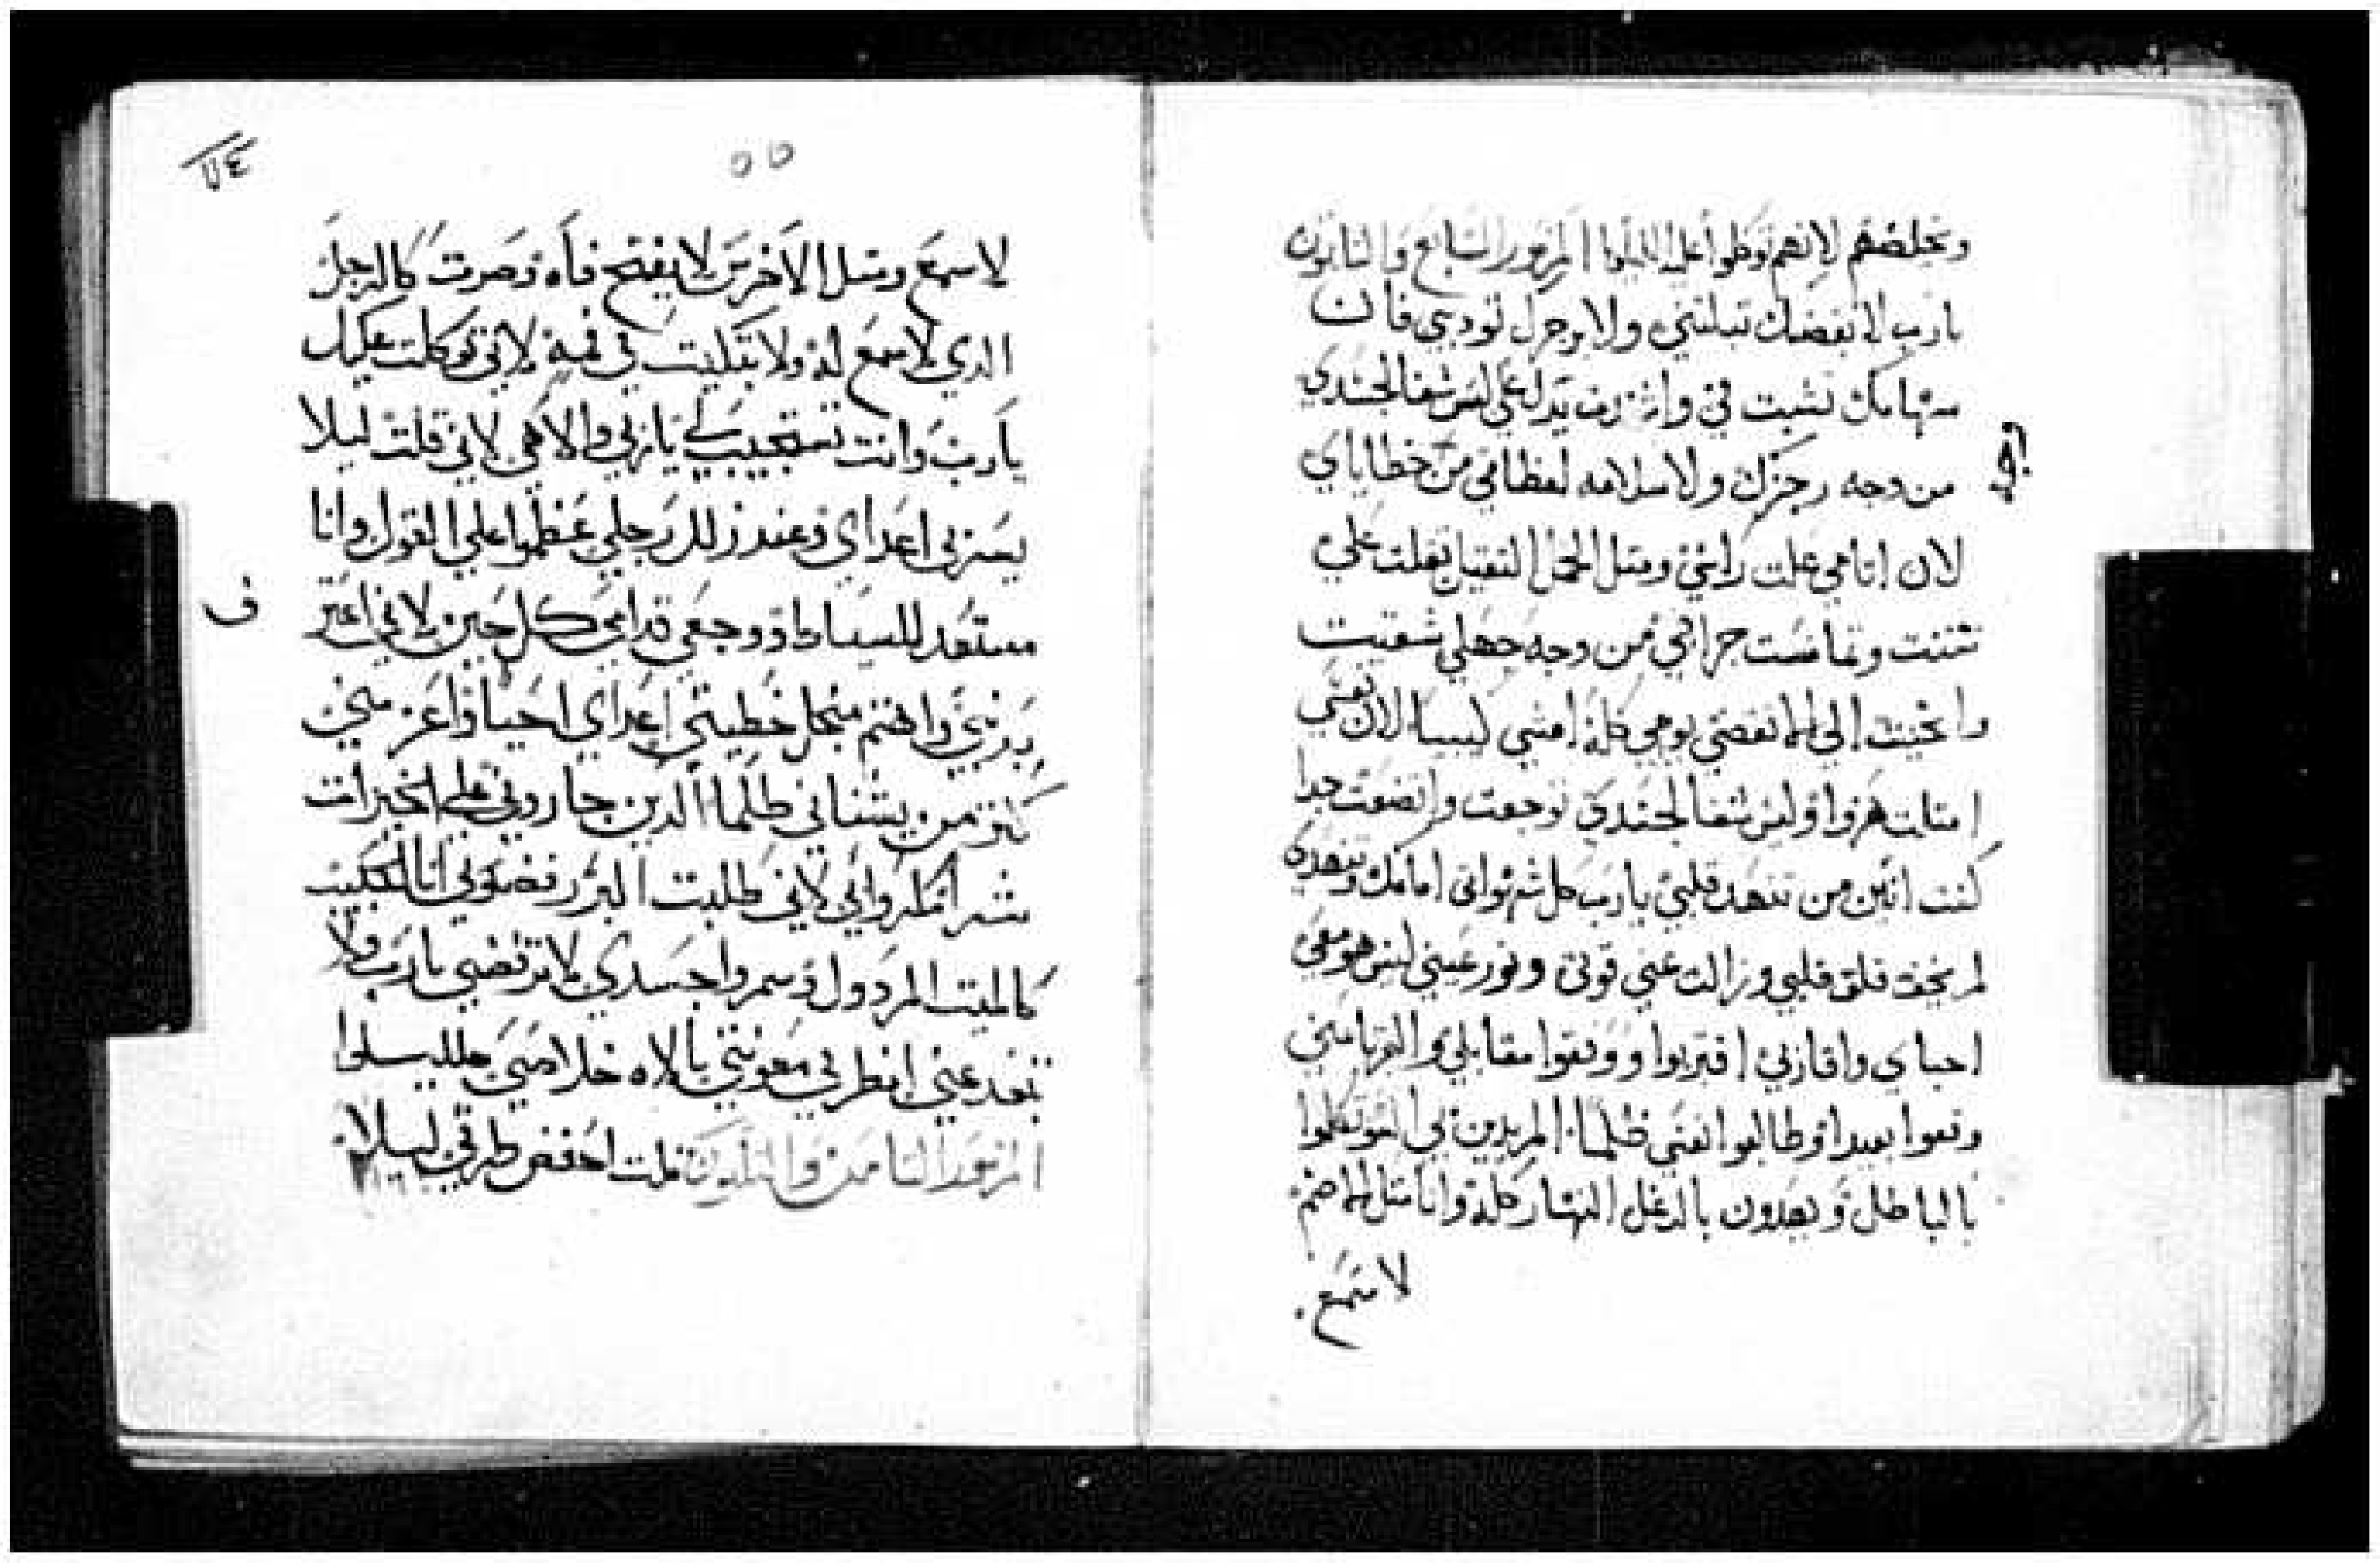 وتخلصهم لانهم توكلوا عليه الليلويا المزمور السابع والثلثون
يارب لا تبغضك تبكتني ولا برجزك توديبي فان
سهامك نشبت في واشتدت يدك علي ليس شفا لجسدي
من وجه رجزك ولا سلامه لعظامي من خطاياي
لان اتامي علت راسي ومثل الحمل الثقيل ثقلت علي
نتنت وتماست جراحي من وجه جهلي شقيت
وانحنيت الي الما نقضي يومي كله امشي كييبا لان نفسي
امتلت هزوا وليس شفا لجسدي توجعت واتضعت جدا
كنت اين من تنهد قلبي يارب كل شهواتي امامك وتنهدي
لم يخف قلق قلبي وزالت عني قوتي ونور عيني ليس هو معي
احباي واقاربي اقتربوا ووقفوا مقابلي والقربا مني
وقفوا بعيدا وطالبوا نفسي ظلما المريدين بي السو تكلموا
بالباطل و يهدون بالدغل النهار كله وانا مثل الاصم
لا سمع
٥٥
لا سمع ومثل الاخرس لا يفتح فاه وصرت كالرجل
الذي لا سمع له ولا تبكيت في فمه لاني توكلت عليك
يارب وانت تستجيب لي ياربي والاهي لاني قلت ليلا
يسر بي اعداي وعند زلل رجلي عظموا علي القول وانا
مستعد للسياط ووجعي قدامي كل حين لاني اخبر
بذنبي واهتم منجل خطيتي اعداي احيا واعز مني
كثر من يشناني ظلما الدين جازوني علي الخيرات
شر امكروا بي لاني طلبت البر رفضوني انا الحبيب
كالميت المردول وسمروا جسدي لا ترفضني يارب ولا
تبعد عني انظر في معونتي يالاه خلاصي الليلويا
المزمور التامن والثلثون قلت احفض طرقي ليلا